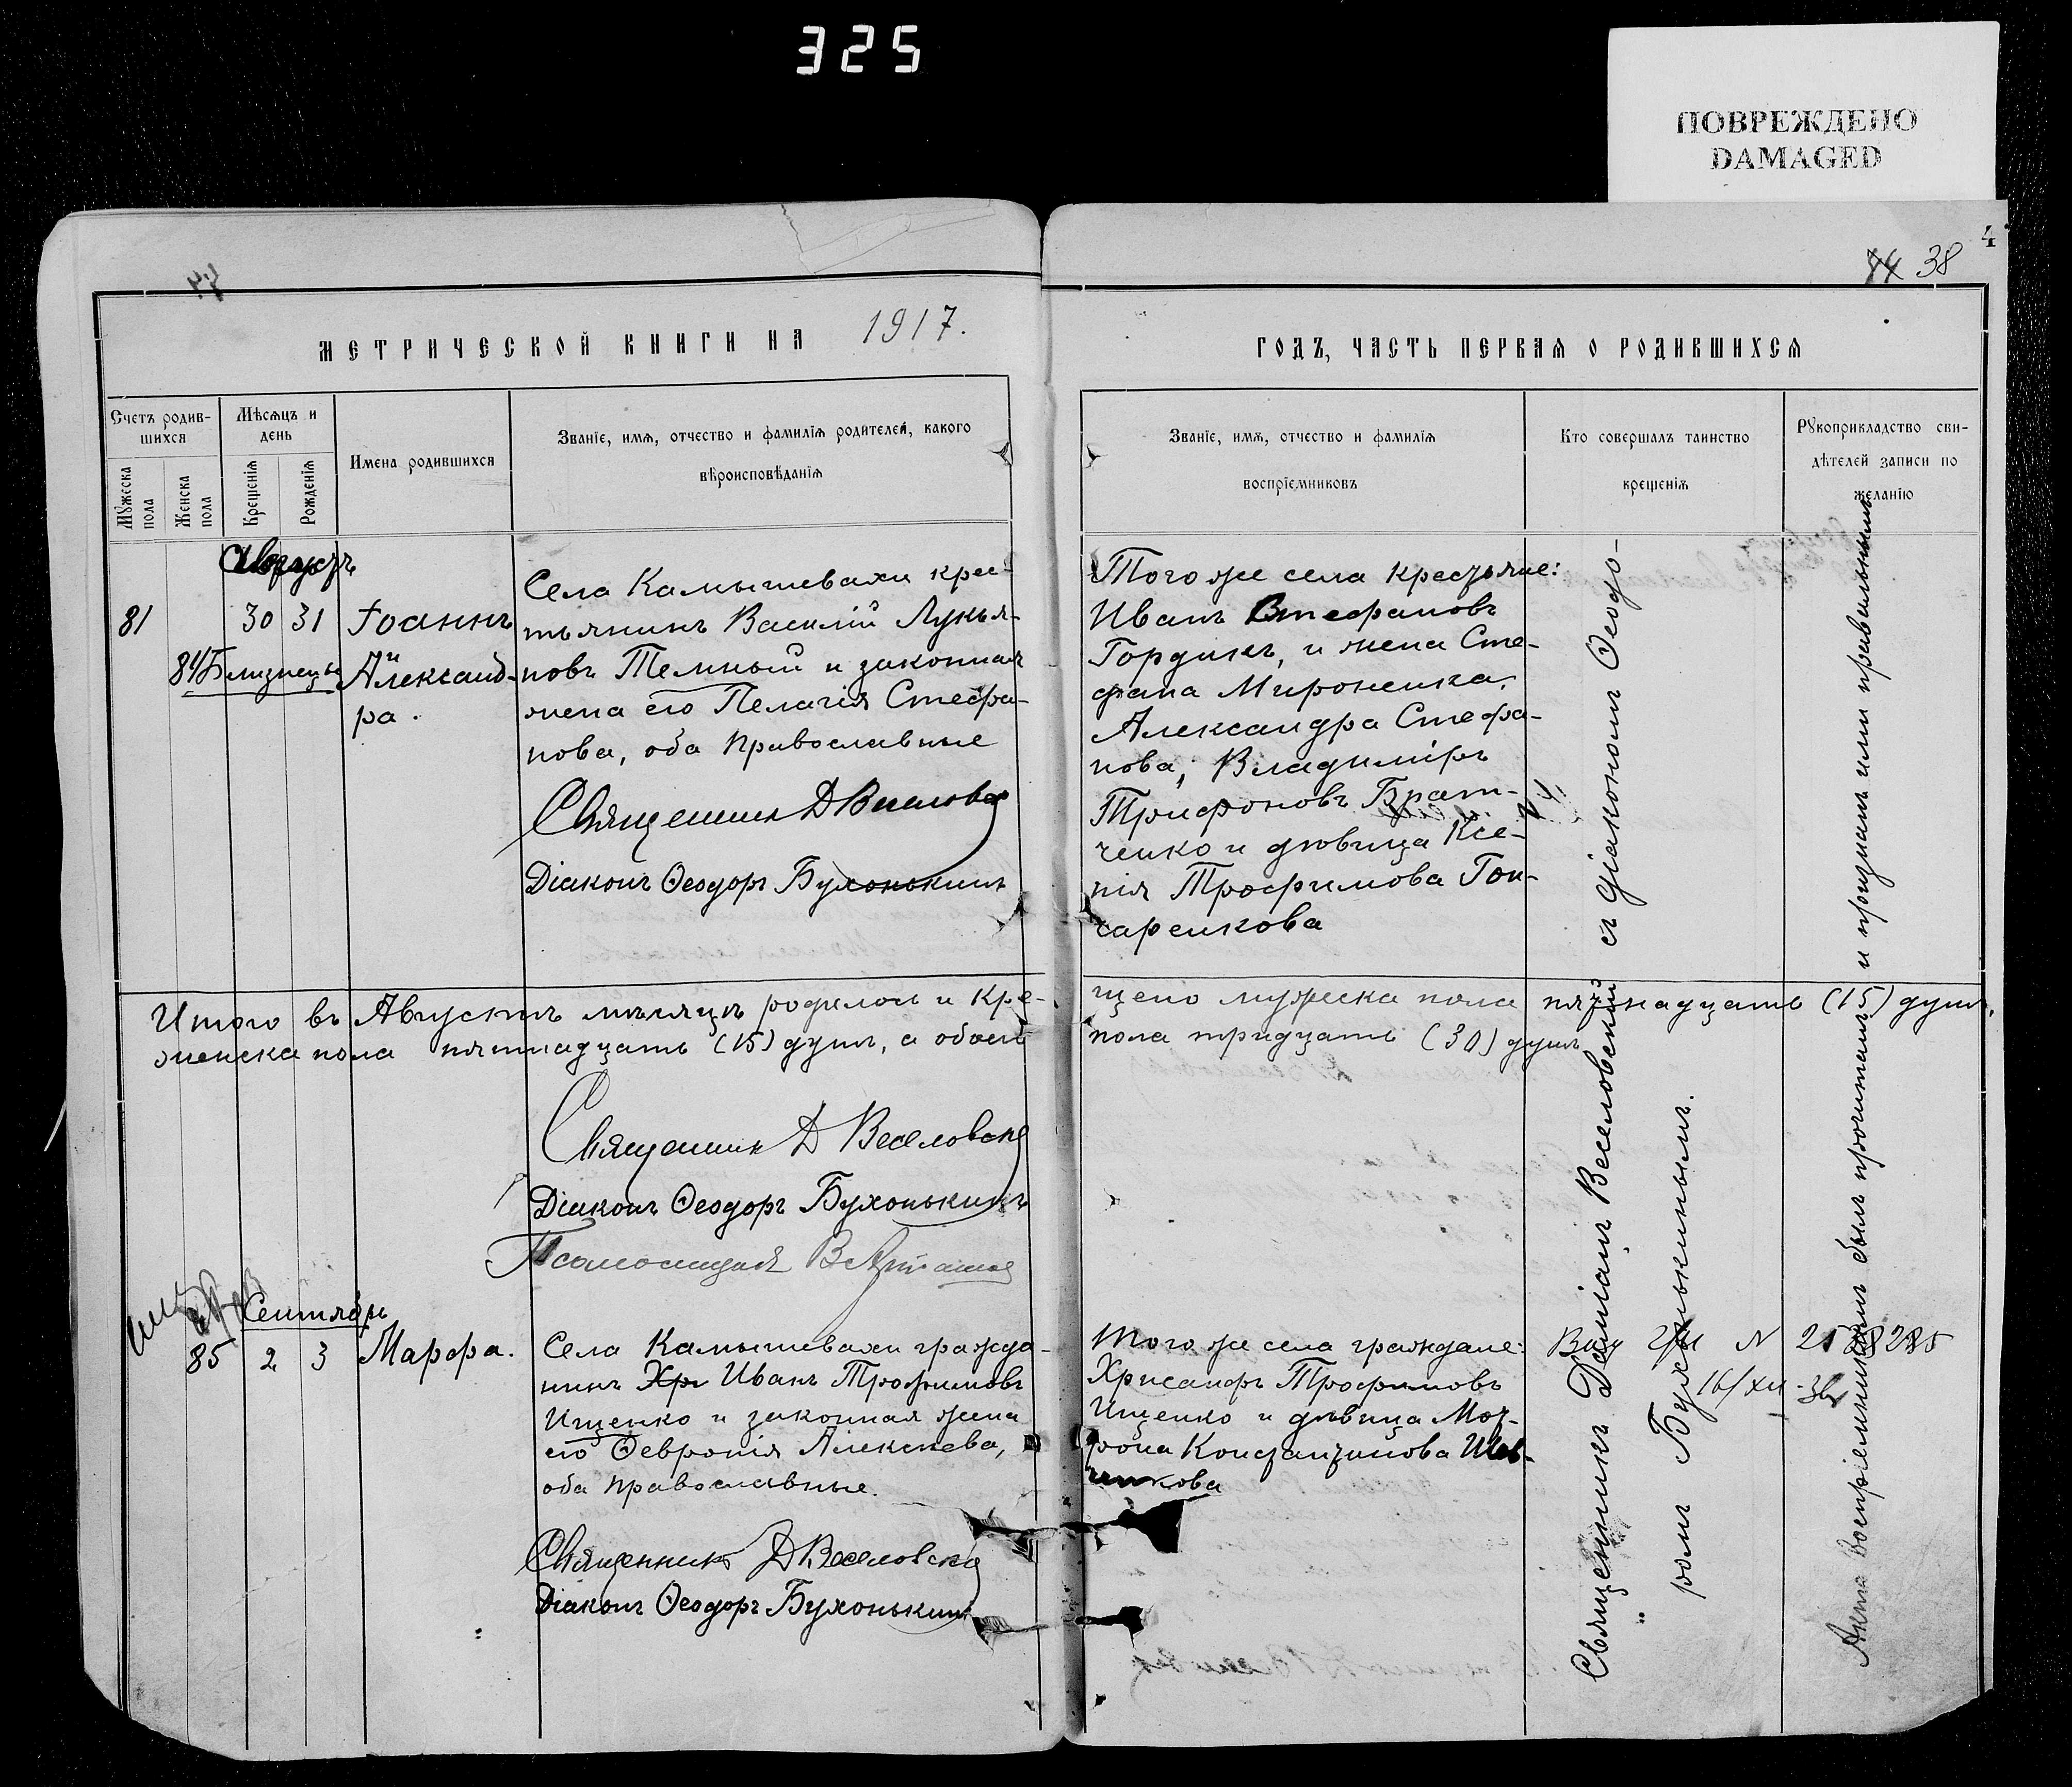 325
ПОВРЕЖДЕНО
DAMAGED
4
44 38
МЕТРИЧЕСКОЙ КНИГИ НА 1917.
ГОДЪ, ЧАСТЬ ПЕРВАЯ О РОДИВШИХСЯ
Счетъ родив-
шихся
Мѣсяцъ и
день
Мужеска
пола
Женска
пола
Крещенія
Рожденія
Имена родившихся
Званіе, имя, отчество и фамилія родителей, какого
вѣроисповѣданія
Званіе, имя, отчество и фамилія
воспріемниковъ
Кто совершалъ таинство
крещенія
Рукоприкладство сви-
дѣтелей записи по
желанію
Августъ
81
30 31
84 Близнецы
Іоаннъ
и
Александ-
ра.
Села Камышевахи крес-
тьянинъ Василій Лукья-
новъ Темный и законная
жена его Пелагія Стефа-
нова, оба православные
Священник Д Веселовск
Діаконъ Ѳеодоръ Бухонькинъ
Того же села крестьяне:
Иванъ Стефановъ
Гордикъ, и жена Сте-
фана Мироненка,
Александра Стефа-
нова; Владиміръ
Трифоновъ Брат-
ченко и дѣвица Ксе-
нія Трофимова Гон-
чаренкова
Итого въ Августѣ мѣсяцѣ родилось и кре-
щено мужеска пола пятнадцать (15) душъ,
женска пола пятнадцать (15) душъ, а обоего
пола тридцать (30) душъ
Священник Д Веселовск
Діаконъ Ѳеодоръ Бухонькинъ
Псаломщикъ В
Сентябрь
85 2 3
Марѳа.
Села Камышевахи гражда-
нинъ Хр Иванъ Трофимовъ
Ищенко и законная жена
его Ѳевронія Алексѣева,
оба православные.
Священникъ Д Веселовск
Діаконъ Ѳеодоръ Бухонькинъ
Того же села граждане:
Хрисанфъ Трофимовъ
Ищенко и дѣвица Мот-
рона Константинова Шев-
ченкова
16/XII
Священникъ Даміанъ Веселовскій съ діакономъ Ѳеодо-
ромъ Бухонькинымъ.
Актъ воспріемникамъ былъ прочитанъ и признанъ ими правильнымъ